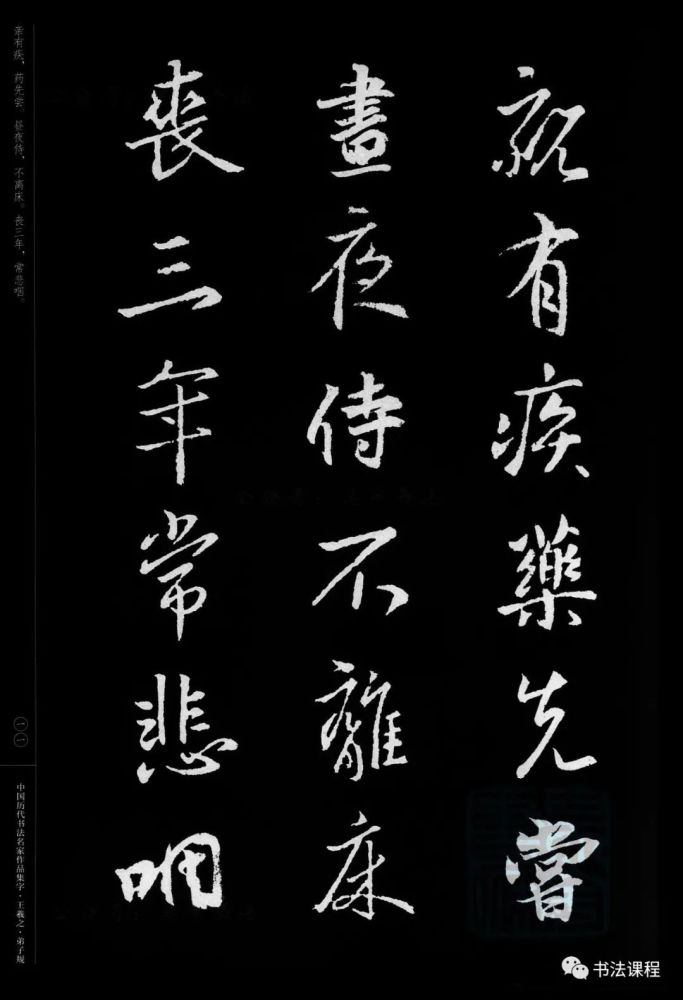 親有疾藥先嘗
晝夜侍不離床
喪三年常悲咽
亲有疾，药先尝。昼夜侍，不离床。丧三年，常悲咽。
一一
中国历代书法名家作品集字·王羲之·弟子规
书法课程